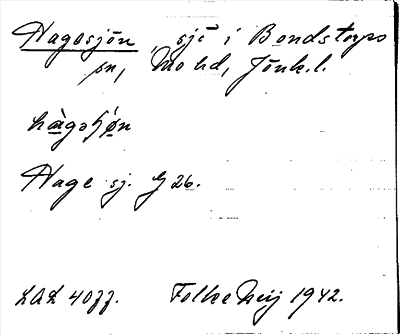 Hagesjön, sjö i Bondstorps
sn, Mo hd, Jönk. l.
Hage sj. G 26.
LAL 4077. Folke Meij 1942.